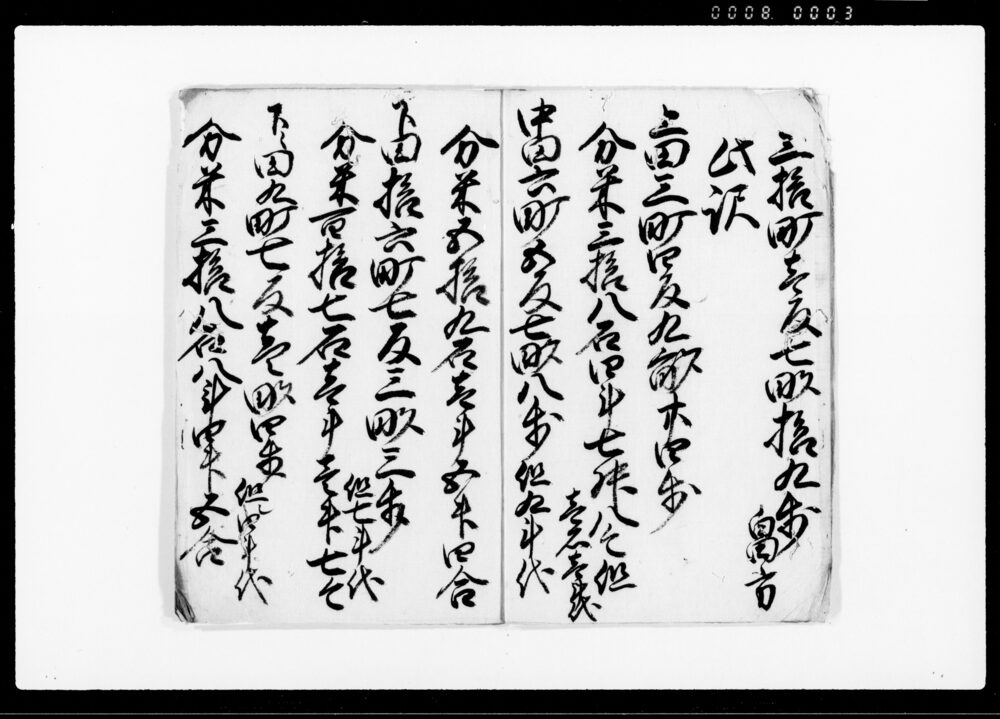 0008 0003
三拾町壱反七畝拾九歩 畠方
此訳
上田三町四反九畝廿四歩
分米三拾八石四斗七升八合 但
壱石壱斗代
中田六町五反七畝八歩 但九斗代
分米五拾九石壱斗五升四合
下田拾六町七反三畝三歩 但七斗代
分米百拾七石壱斗壱升七合
下々田九町七反壱畝四歩 但四斗代
分米三拾八石八斗四升五合